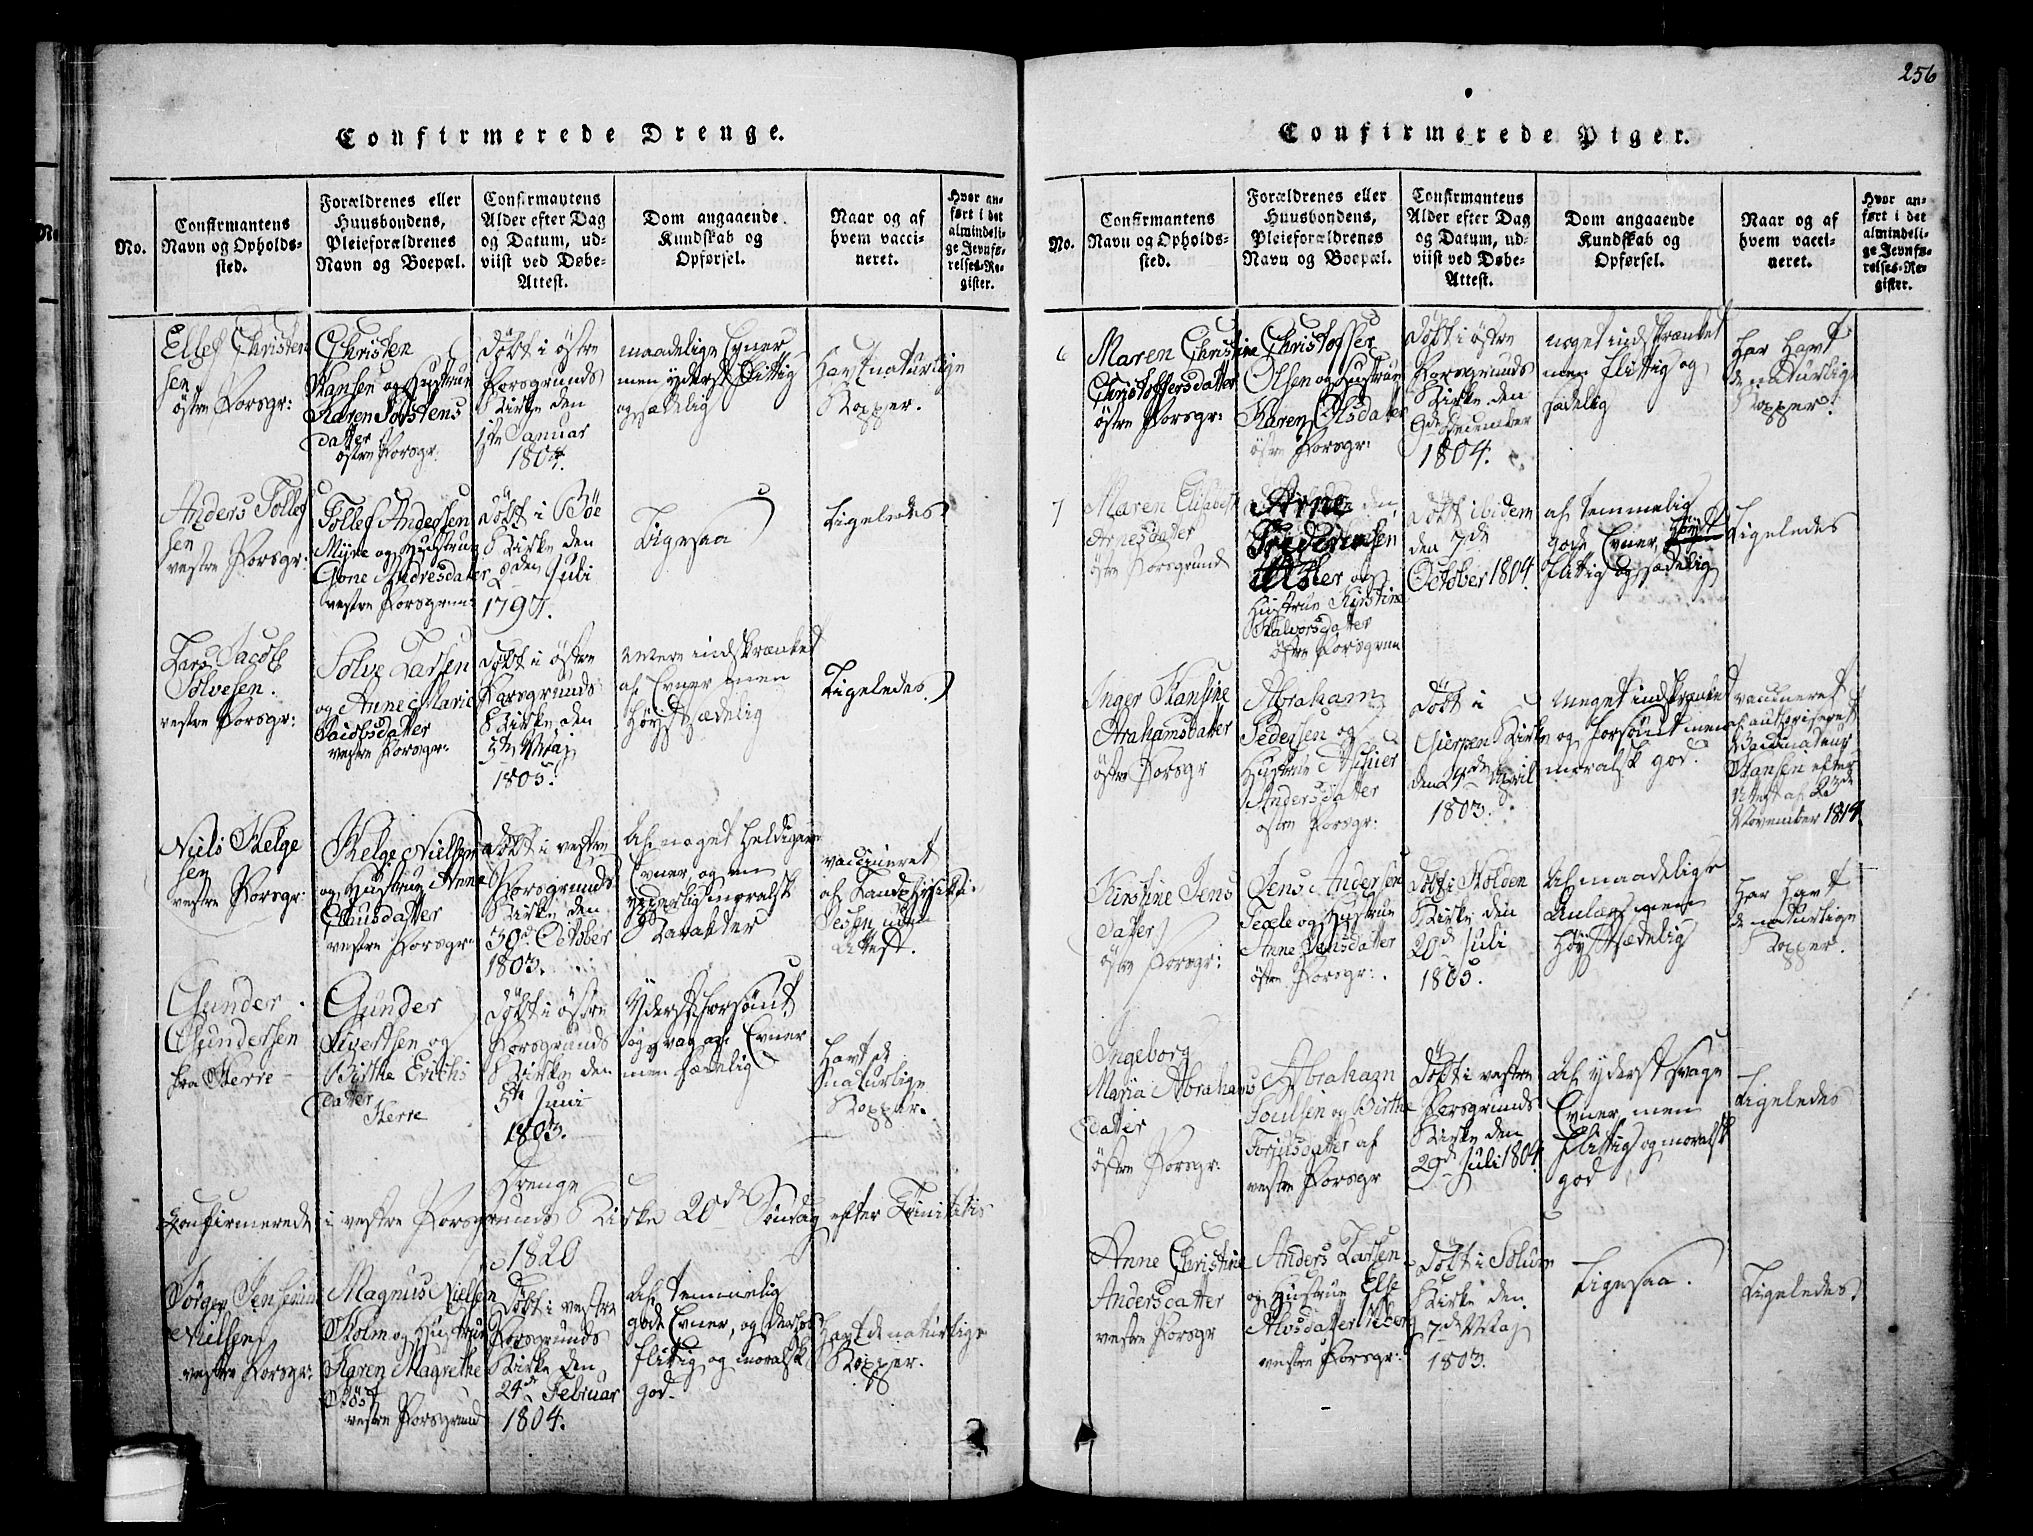 256
Confirmerede Drenge.
No.
Confirmantens
Navn og Opholds-
sted.
Forældrenes eller
Huusbondens,
Pleieforældrenes
Navn og Boepæl.
Confirmantens
Alder efter Dag
og Datum, ud-
viist ved Døbe-
Attest.
Dom angaaende
Kundskab og
Opførsel.
Naar og af
hvem vacci-
neret.
Hvor an-
ført i det
almindeli-
ge Jevnfø-
relses-Re-
gister.
Ellef Christen
sen
østre Porsgr:
Christen
Hansen og Hustrue
Karen Torstens
datter
østre Porsgr:
Døbt i østre
Porsgrunds
Kirke den
1te Januar
1804.
maadelige Evner
men yderst flittig
og sædelig
Havt naturlige
Kopper.
Anders Tollef
sen
vestre Porsgr:
Tollef Anderssen
Myre og Hustrue
Gone Andresdatter
vestre Porsgrun:
Døbt i Bøe
Kirke den
den Juli
1797.
Ligesaa
Ligeledes
Lars Jacob
Solvesen.
vestre Porsgr:
Solve Larsen
og Anne Marie
Jacobsdatter
vestre Porsgr:
Døbt i østre
Porsgrunds
Kirke den
5te Maj
1805.
mere indskrænket
af Evner men
høyst sædelig
Ligeledes.
Niels Helge
sen
vestre Porsgr:
Helge Nielsen
og Hustrue Anne
Clausdatter
vestre Porsgr:
Døbt i vestre
Porsgrunds
Kirke den
30d October
1803.
Af noget heldigere
Evner, og en
yderlig moralsk
Karakter
vaccineret
af Landphysikus
uden
Attest.
Gunder
Gundersen
fra Herre
Gunder
Sivertsen og
Birthe Erichs
datter
Herre
Døbt i østre
Porsgrunds
Kirke den
5te Juni
1803.
Yderst forsømt
og svag af Evner
men sædelig
Havt de
naturlige
Kopper.
Drenge
Confirmerede i vestre Porsgrunds Kirke 20d Søndag efter Trinitatis
1820
Jørgen Jensenius
Nielsen
vestre Porsgr:
Magnus Nielsen
Holm og Hustrue
Karen Magrethe
Röst
vestre Porsgrund
Døbt i vestre
Porsgrunds
Kirke den
24de Februar
1804.
Af temmelig
gode Evner, og derhos
flittig og moralsk
god.
Havt de naturlige
Kopper.
Confirmerede Piger.
No.
Confirmantens
Navn og Opholds-
sted.
Forældrenes eller
Huusbondens,
Pleieforældrenes
Navn og Boepæl.
Confirmantens
Alder efter Dag
og Datum, ud-
viist ved Døbe-
Attest.
Dom angaaende
Kundskab og
Opførsel.
Naar og af
hvem vacci-
neret.
Hvor an-
ført i det
almindeli-
ge Jevnfø-
relses-Re-
gister.
6
Maren Christine
Christoffersdatter
østre Porsgr:
Christoffer
Olsen og Hustrue
Karen Olsdatter
østre Porsgr:
Døbt i østre
Porsgrunds
Kirke den
9de December
1804.
noget indskrænket
men flittig og
sædelig
Har havt
de naturlige
Kopper.
7
Maren Elisabeth
Arnesdatter
østre Porsgrund
Arne
Frederiksen
og
Hustrue Kirstine
Halvorsdatter
østre Porsgrun
Døbt ibidem
den 7de
October 1804
af temmelig
gode Evner,
flittig og sædelig
Ligeledes
Inger Hansine
Arahamsdatter
østre Porsgr
Abraham
Pedersen og
Hustrue
Andersdatter
østre Porsgr:
Døbt i
Gierpen Kirke
den 4de April
1803.
meget indskrænket
og forsømt men
moralsk god.
vaccineret
af authoriseret
Vaccinateur
Hansen efter
Attest af 23de
November 1814
Kirstine Jens
Datter
østre Porsgr:
Jens Andersen
og Hustrue
Anne Jensdatter
østre Porsgr:
Døbt i Holden
Kirke den
20d Juli
1805.
Af maadelige
Anlæg men
høyst sædelig
Har havt
de naturlige
Kopper.
Ingeborg
Maria Abrahams
datter
østre Porsgr:
Abraham
Poulsen og Birthe
Torjusdatter af
vestre Porsgr
Døbt i vestre
Porsgrunds
Kirke den
29d Juli 1804
Af yderst svage
Evner, men
flittig og moralsk
god
Ligeledes
Anne Christine
Andersdatter
vestre Porsgr
Anders Larsen
og Hustrue Else
Alvsdatter
vestre Porsgr:
Døbt i Solum
Kirke den
7d Maj
1803.
Ligesaa.
Ligeledes.